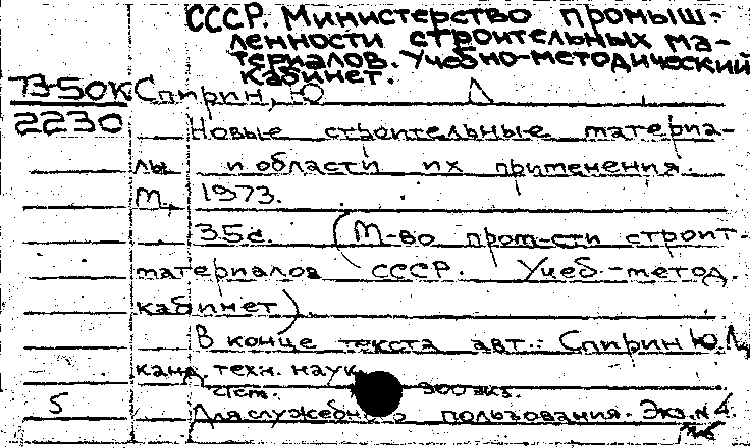 СССР. Министерство промыш-
ленности строительных ма-
териалов. Учебно-методический
кабинет.
Спирин, Ю Л
2230
Новые строительные материа-
лы и области их применения.
М., 1973.
35с. (М-во пром-сти строит.
материалов СССР. Учеб.-метод.
кабинет).
В конце текста авт.: Спирин Ю.Л.,
канд. техн. наук.
300 экз.
5
Для служебного пользования. Экз. № 4.